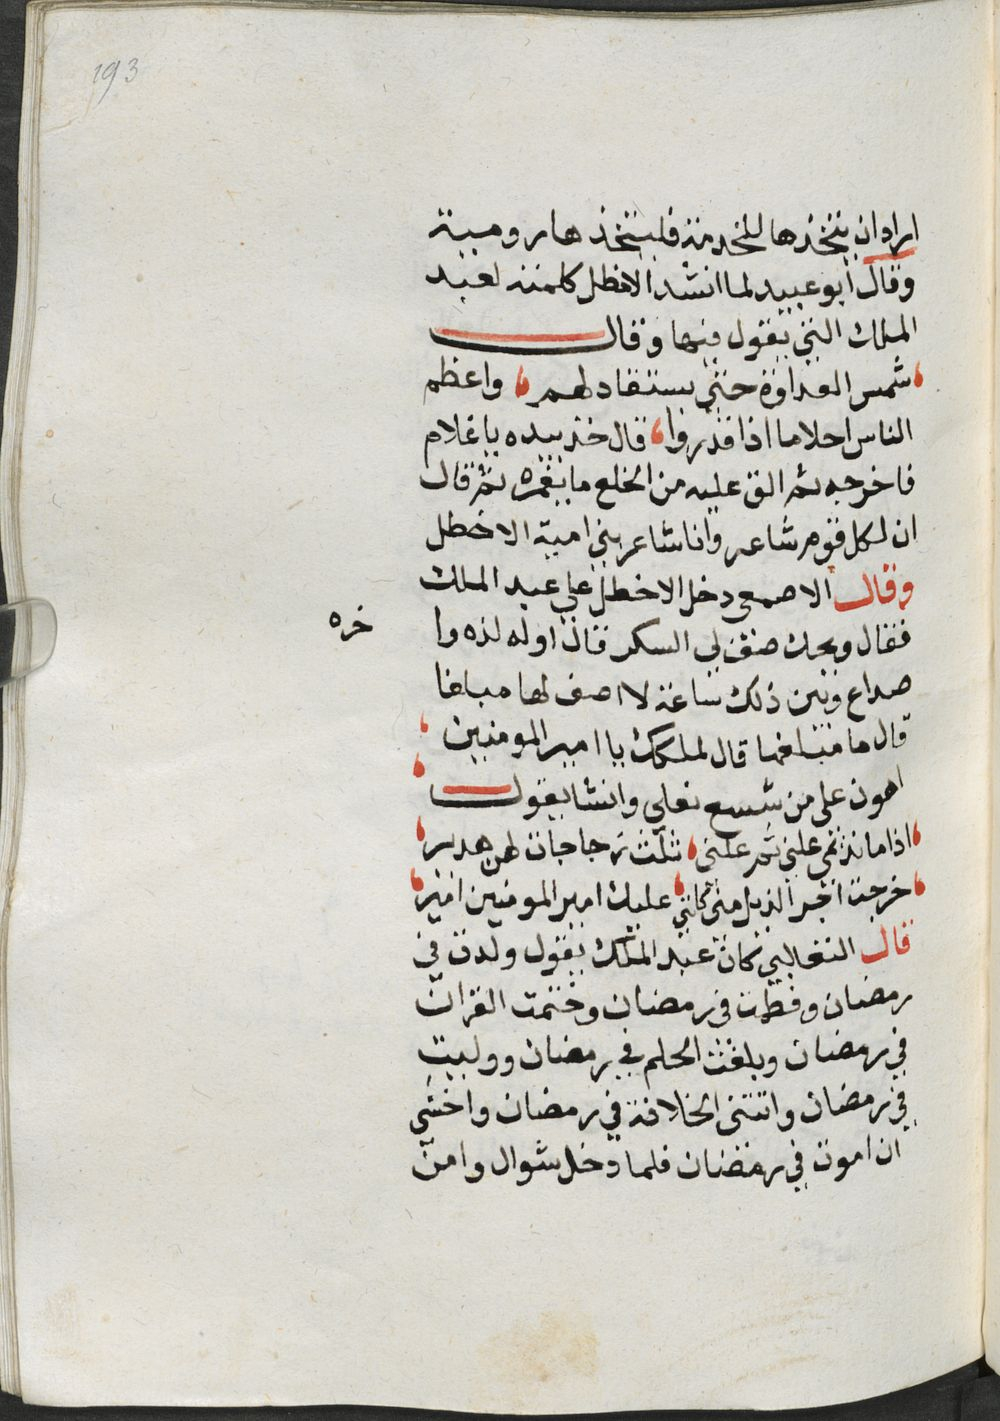 193
اراد ان يتخذها للخدمة فليتخذها رومية
وقال ابو عبيد لما انشد الاخطل كلمته لعبد
الملك التي يقول فيها وقال
شمس العداوة حتى يستقاد لهم واعظم
الناس احلاما اذا قدروا قال خذ بيده يا غلام
فاخرجه ثم الق عليه من الخلع ما يغمره ثم قال
ان لكل قوم شاعر وانا شاعر بني امية الاخطل
وقال الاصمعي دخل الاخطل علي عبد الملك
فقال ويحك صف لي السكر قال اوله لذه وا
خره
صداع وبين ذلك ساعة لا اصف لها مبلغا
قال ما مبلغها قال لملكك يا امير المومنين
اهون علي من شسع نعلي وانشا يقول
اذا ما نديمي علني ثم علني ثلث زجاجات لهن هدير
خرجت اجر الذيل مني كانني عليك امير المومنين امير
قال الثعالبي كان عبد الملك يقول ولدت في
رمضان وفطمت في رمضان وختمت القران
في رمضان وبلغت الحلم في رمضان ووليت
في رمضان واتتني الخلافة في رمضان واخشي
ان اموت في رمضان فلما دخل شوال وامن